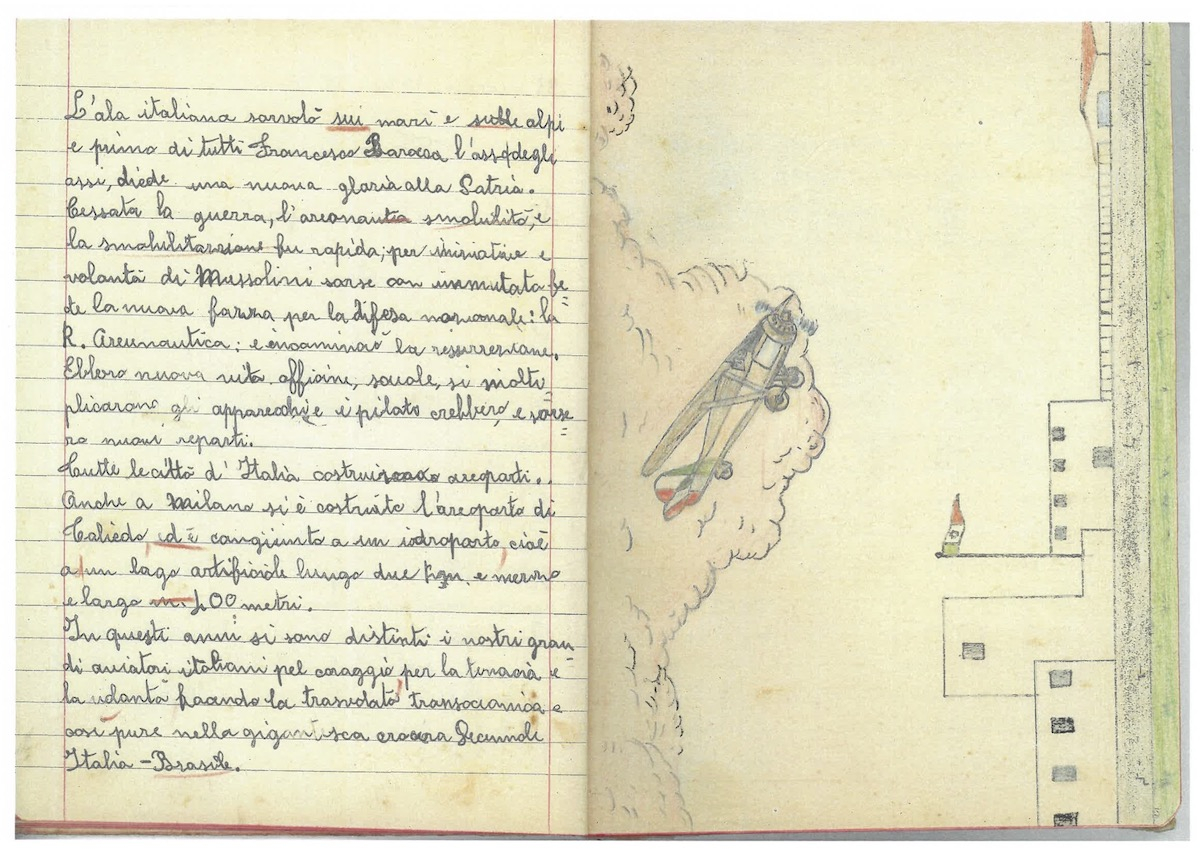 L'ala italiana sorvolò sui mari e sulle alpi
e primo di tutti Francesco Baraca l'asso degli
assi, diede una nuova gloria alla Patria.
Cessata la guerra, l'areonauta smobilitò, e
la smobilitazzione fu rapida; per iniziative e
volontà di Mussolini sorse con immutata fe=
de la nuova forza per la difesa nazionale: la
R. Areunautica; e incaminaò la resurrezione.
Ebbero nuova vita officine, scuole, si molti
plicarono gli apparecchi e i piloto crebbero, e sorse=
ro nuovi reparti.
Tutte le città d'Italia costruirono areoporti..
Anche a Milano si è costruito l'areoporto di
Taliedo, ed è congiunto a un idroporto, cioè
a un lago artificiale lungo due km. e mezzo
e largo m. 400 metri.
In questi anni si sono distinti i nostri gran-
di aviatori italiani pel coraggio per la tenacia e
la volontà facendo la trasvolata transocianica e
così pure nella gigantisca crocera Decennale
Italia - Brasile.